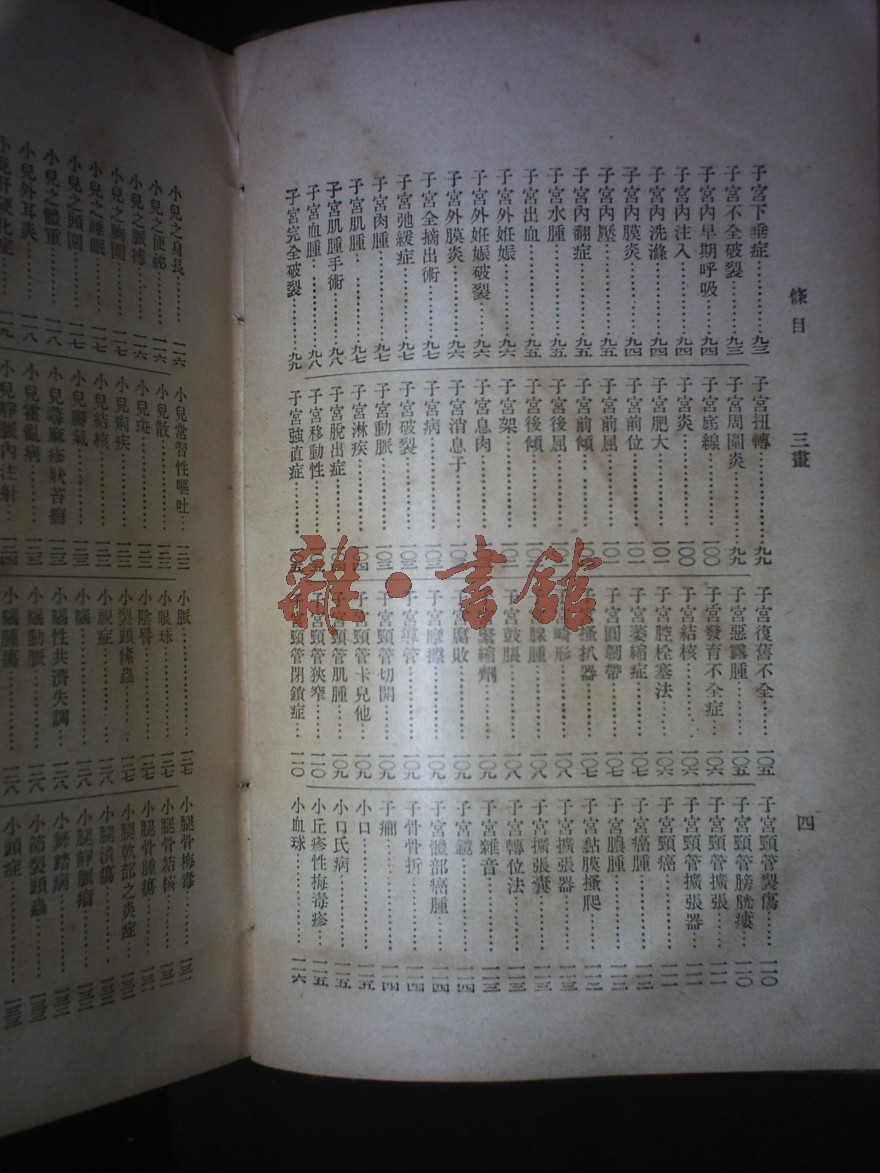 條目
三畫
四
子宮下垂症⋯⋯九三
子宮不全破裂⋯⋯九三
子宮內早期呼吸⋯⋯九四
子宮內注入⋯⋯九四
子宮內洗滌⋯⋯九四
子宮內膜炎⋯⋯九四
子宮內壓⋯⋯九五
子宮內翻症⋯⋯九五
子宮水腫⋯⋯九五
子宮出血⋯⋯九五
子宮外妊娠⋯⋯九六
子宮外妊娠破裂⋯⋯九六
子宮外膜炎⋯⋯九六
子宮全摘出術⋯⋯九六
子宮弛緩症⋯⋯九七
子宮肉腫⋯⋯九七
子宮肌腫⋯⋯九七
子宮肌腫手術⋯⋯九八
子宮血腫⋯⋯九八
子宮完全破裂⋯⋯九九
子宮扭轉⋯⋯九九
子宮周圍炎⋯⋯九九
子宮底線⋯⋯一〇〇
子宮炎⋯⋯一〇〇
子宮肥大⋯⋯一〇一
子宮前位⋯⋯一〇一
子宮前屈
子宮前傾
子宮後屈
子宮後傾
子宮架
子宮息肉
子宮消息子
子宮病⋯⋯一〇三
子宮破裂⋯⋯一〇三
子宮動脈⋯⋯一〇三
子宮淋疾
子宮脫出症
子宮移動性
子宮強直症
子宮復舊不全⋯⋯一〇五
子宮惡露腫⋯⋯一〇五
子宮發育不全症⋯⋯一〇六
子宮結核⋯⋯一〇六
子宮腔栓塞法⋯⋯一〇六
子宮萎縮症⋯⋯一〇七
子宮圓韌帶⋯⋯一〇七
搔扒器⋯⋯一〇七
畸形⋯⋯一〇八
腺腫⋯⋯一〇八
鼓脹⋯⋯一〇八
緊縮劑⋯⋯一〇九
腐敗⋯⋯一〇九
子宮摩擦⋯⋯一〇九
子宮導管⋯⋯一〇九
子宮頸管切開⋯⋯一〇九
子宮頸管卡兒他⋯⋯一〇九
子宮頸管肌腫⋯⋯一〇九
子宮頸管狹窄⋯⋯一一〇
子宮頸管閉鎖症⋯⋯一一〇
子宮頸管裂傷⋯⋯一一〇
子宮頸管膀胱瘻⋯⋯一一〇
子宮頸管擴張⋯⋯一一一
子宮頸管擴張器⋯⋯一一一
子宮頸癌⋯⋯一一一
子宮癌腫⋯⋯一一一
子宮膿腫⋯⋯一一二
子宮黏膜搔爬⋯⋯一一二
子宮擴張器⋯⋯一一三
子宮擴張囊⋯⋯一一三
子宮轉位法⋯⋯一一三
子宮雜音⋯⋯一一三
子宮鏡⋯⋯一一四
子宮體部癌腫⋯⋯一一四
子骨骨折⋯⋯一一四
子癇⋯⋯一一四
小口⋯⋯一一五
小口氏病⋯⋯一一五
小丘疹性梅毒疹⋯⋯一一五
小血球⋯⋯一一六
小兒之身長⋯⋯一一六
小兒之便祕⋯⋯一一六
小兒之脈搏⋯⋯一一六
小兒之胸圍⋯⋯一一七
小兒之睡眠⋯⋯一一七
小兒之頭圍⋯⋯一一七
小兒之體重⋯⋯一一八
小兒外耳炎⋯⋯一一八
小兒肝硬化症⋯⋯一一九
小兒常習性嘔吐
小兒散
小兒斑
小兒痢疾
小兒結核
小兒腳氣
小兒蕁麻疹狀苔癬
小兒霍亂病
小兒靜脈內注射
小脈⋯⋯一二七
小眼球⋯⋯一二七
小陰脣⋯⋯一二七
小裂頭條蟲⋯⋯一二七
小視症⋯⋯一二八
小腦⋯⋯一二八
小腦性共濟失調⋯⋯一二八
小腦動脈⋯⋯一二八
小腦腫瘍⋯⋯一二八
小腿骨梅毒
小腿骨結核
小腿骨腫瘍
小腿軟部之炎症
小腿潰瘍
小腿靜脈瘤
小舞蹈病
小頭症
雜·書館